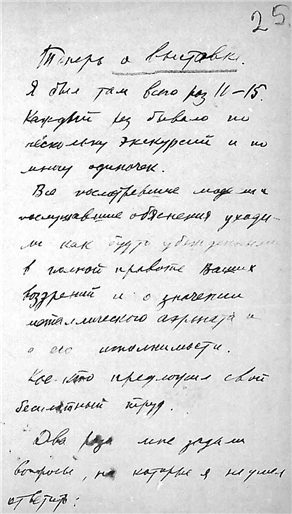 25.
Теперь о выставке.
Я был там всего раз 11-15.
Каждый раз бывало по
несколку экскурсий и по
многу одиночек.
Все посмотревшие модели и
послушавшие объяснения уходи-
ли как будто убежденными
в полной правоте Ваших
воззрений и о значении
металлического аэроната и
о его исполнимости.
Кое-кто предложил свой
бесплатный труд.
Два раза мне задали
вопросы, на которые я не умел
ответить: